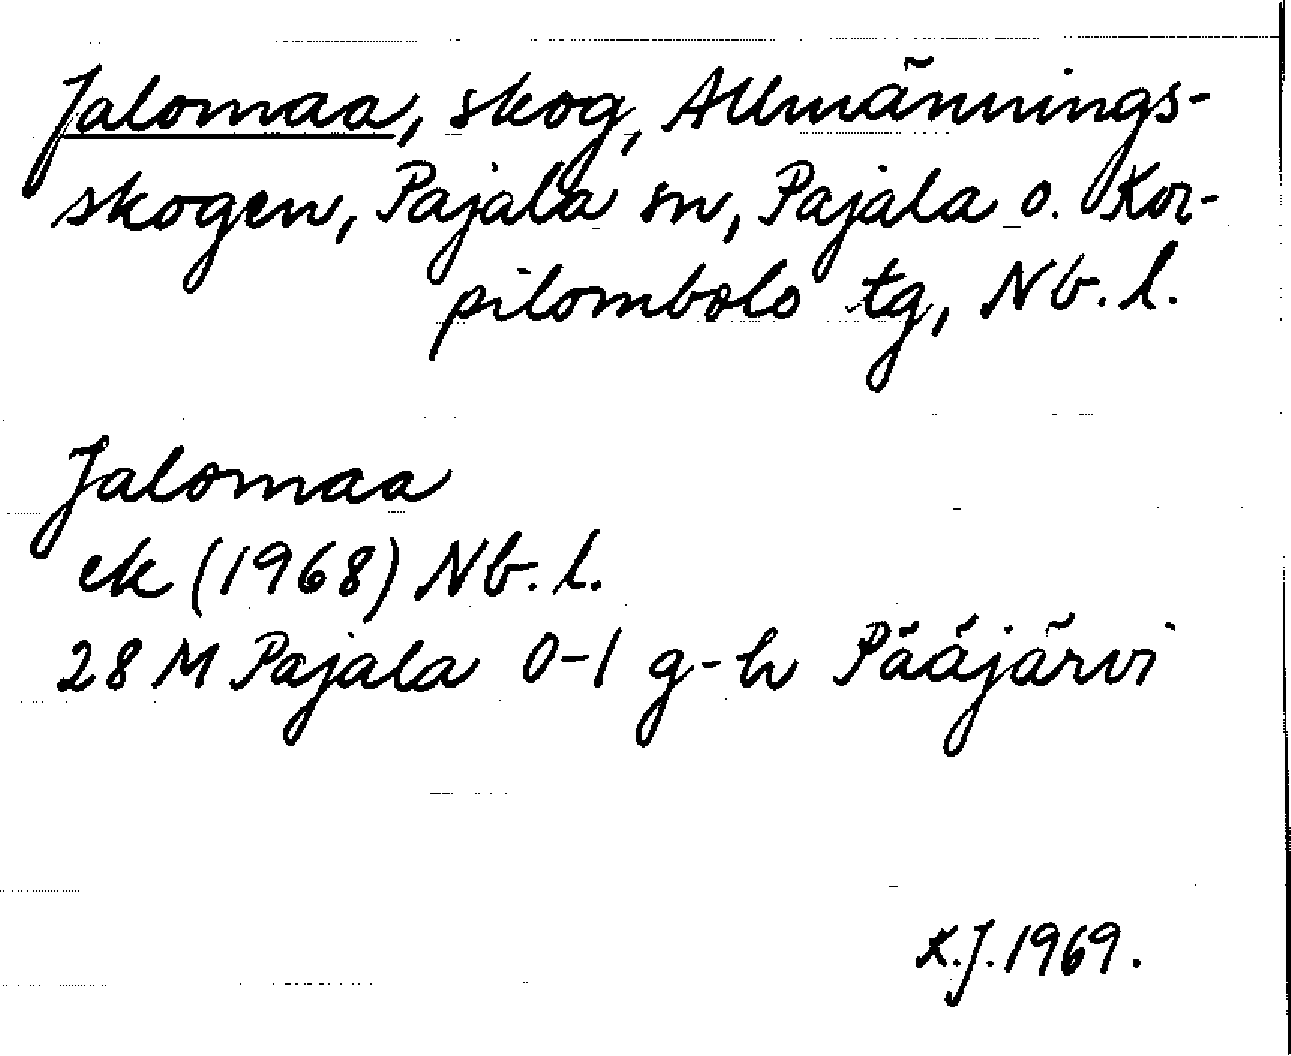 Jalomaa, skog, Allmännings-
skogen, Pajala sn, Pajala o. Kor-
pilombolo tg, Nb. l.
Jalomaa
ek (1968) Nb. l.
28 M Pajala 0-1 g-h Pääjärvi
K.J. 1969.